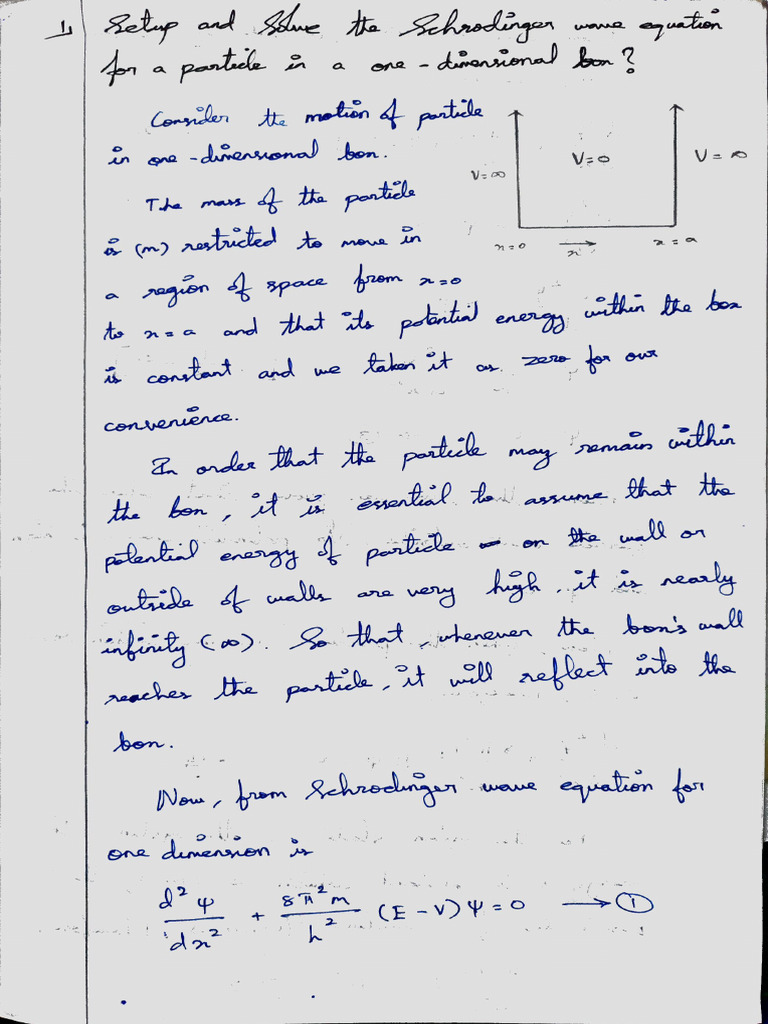 1, Setup and Solve the Schrodinger wave equation
for a particle in a one-dimensional box?
Consider the motion of particle
in one-dimensional box.
V=∞
V=0
V=∞
x=0
x
x=a
The mass of the particle
is (m) restricted to move in
a region of space from x=0
to x=a and that its potential energy within the box
is constant and we taken it as zero for our
convenience.
In order that the particle may remain within
the box, it is essential to assume that the
potential energy of particle on the wall or
outside of walls are very high, it is nearly
infinity (∞). So that, whenever the box's wall
reaches the particle, it will reflect into the
box.
Now, from Schrodinger wave equation for
one dimension is
d²ψ/dx² + 8π²m/h² (E-V)ψ=0 → ①